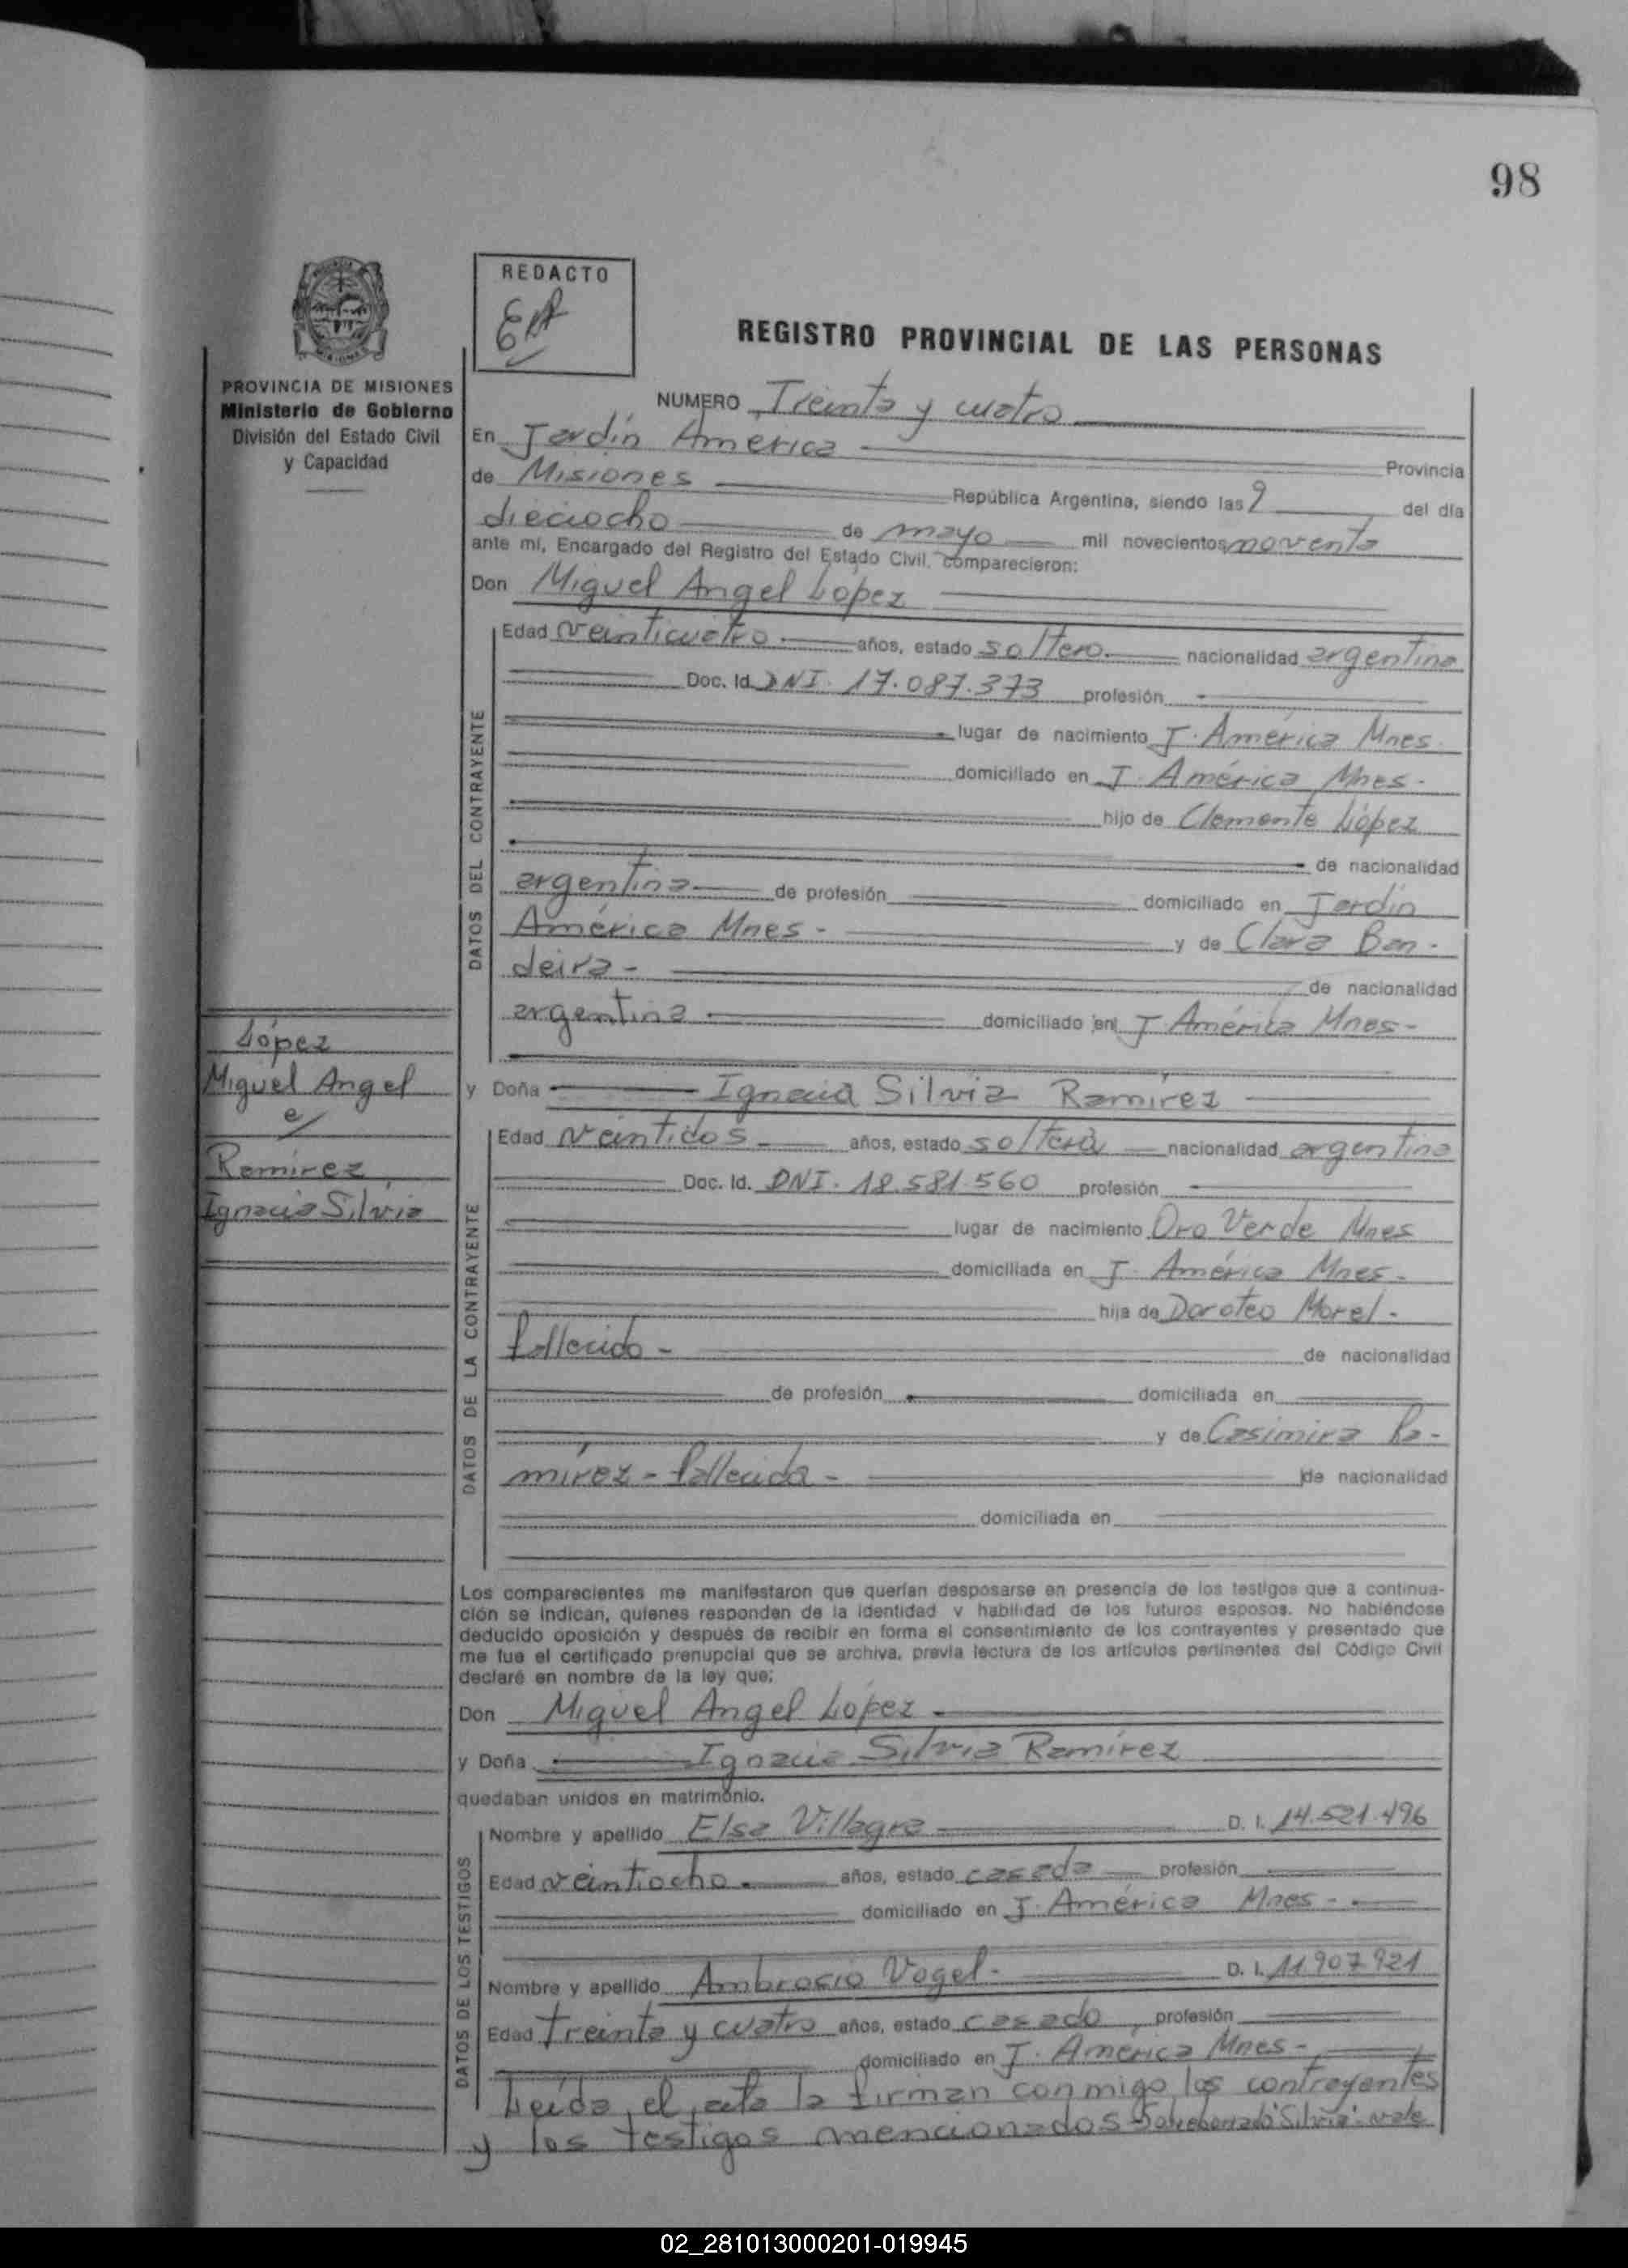 98
REDACTO
REGISTRO PROVINCIAL DE LAS PERSONAS
PROVINCIA DE MISIONES
Ministerio de Gobierno
División del Estado Civil
y Capacidad
NUMERO Treinta y cuatro
En Jardín América Provincia
de Misiones República Argentina, siendo las 9 del día
dieciocho de mayo mil novecientos noventa
ante mí, Encargado del Registro del Estado Civil, comparecieron:
Don Miguel Angel López
DATOS DEL CONTRAYENTE
Edad veinticuatro años, estado soltero nacionalidad argentina
Doc. Id. DNI. 17.087.373 profesión
lugar de nacimiento J. América Mnes.
domiciliado en J. América Mnes.
hijo de Clemente López
de nacionalidad
argentina de profesión domiciliado en Jardín
América Mnes - y de Clara Ban-
deira - de nacionalidad
argentina domiciliado en J América Mnes-
López
Miguel Angel
c/
Ramírez
Ignacia Silvia
y Doña Ignacia Silvia Ramírez
DATOS DE LA CONTRAYENTE
Edad veintidos años, estado soltera nacionalidad argentina
Doc. Id. DNI. 18.581.560 profesión
lugar de nacimiento Oro Verde Mnes
domiciliada en J. América Mnes-
hija de Doroteo Morel-
fallecido - de nacionalidad
de profesión domiciliada en
y de Casimira Ra-
mírez - fallecida - de nacionalidad
domiciliada en
Los comparecientes me manifestaron que querían desposarse en presencia de los testigos que a continua-
ción se indican, quienes responden de la identidad y habilidad de los futuros esposos. No habiéndose
deducido oposición y después de recibir en forma el consentimiento de los contrayentes y presentado que
me fue el certificado prenupcial que se archiva, previa lectura de los artículos pertinentes del Código Civil
declaré en nombre de la ley que:
Don Miguel Angel López
y Doña Ignacia Silvia Ramírez
quedaban unidos en matrimonio.
DATOS DE LOS TESTIGOS
Nombre y apellido Elsa Villagra D. I. 14.521.496
Edad veintiocho años, estado casada profesión
domiciliado en J. América Mnes -
Nombre y apellido Ambrosio Vogel- D. I. 11.907.921
Edad treinta y cuatro años, estado casado profesión
domiciliado en J. América Mnes-
Leída el acta la firman conmigo los contrayentes
y los testigos mencionados Sobreborrado "Silvia" vale
02_281013000201-019945